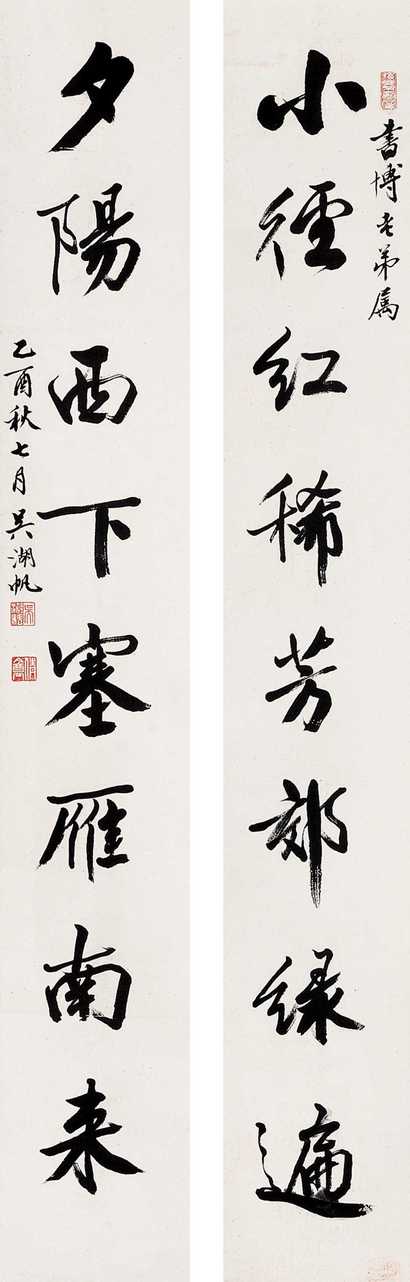 小徑紅稀芳郊綠遍
書博老弟屬
夕陽西下塞雁南來
乙酉秋七月吳湖帆